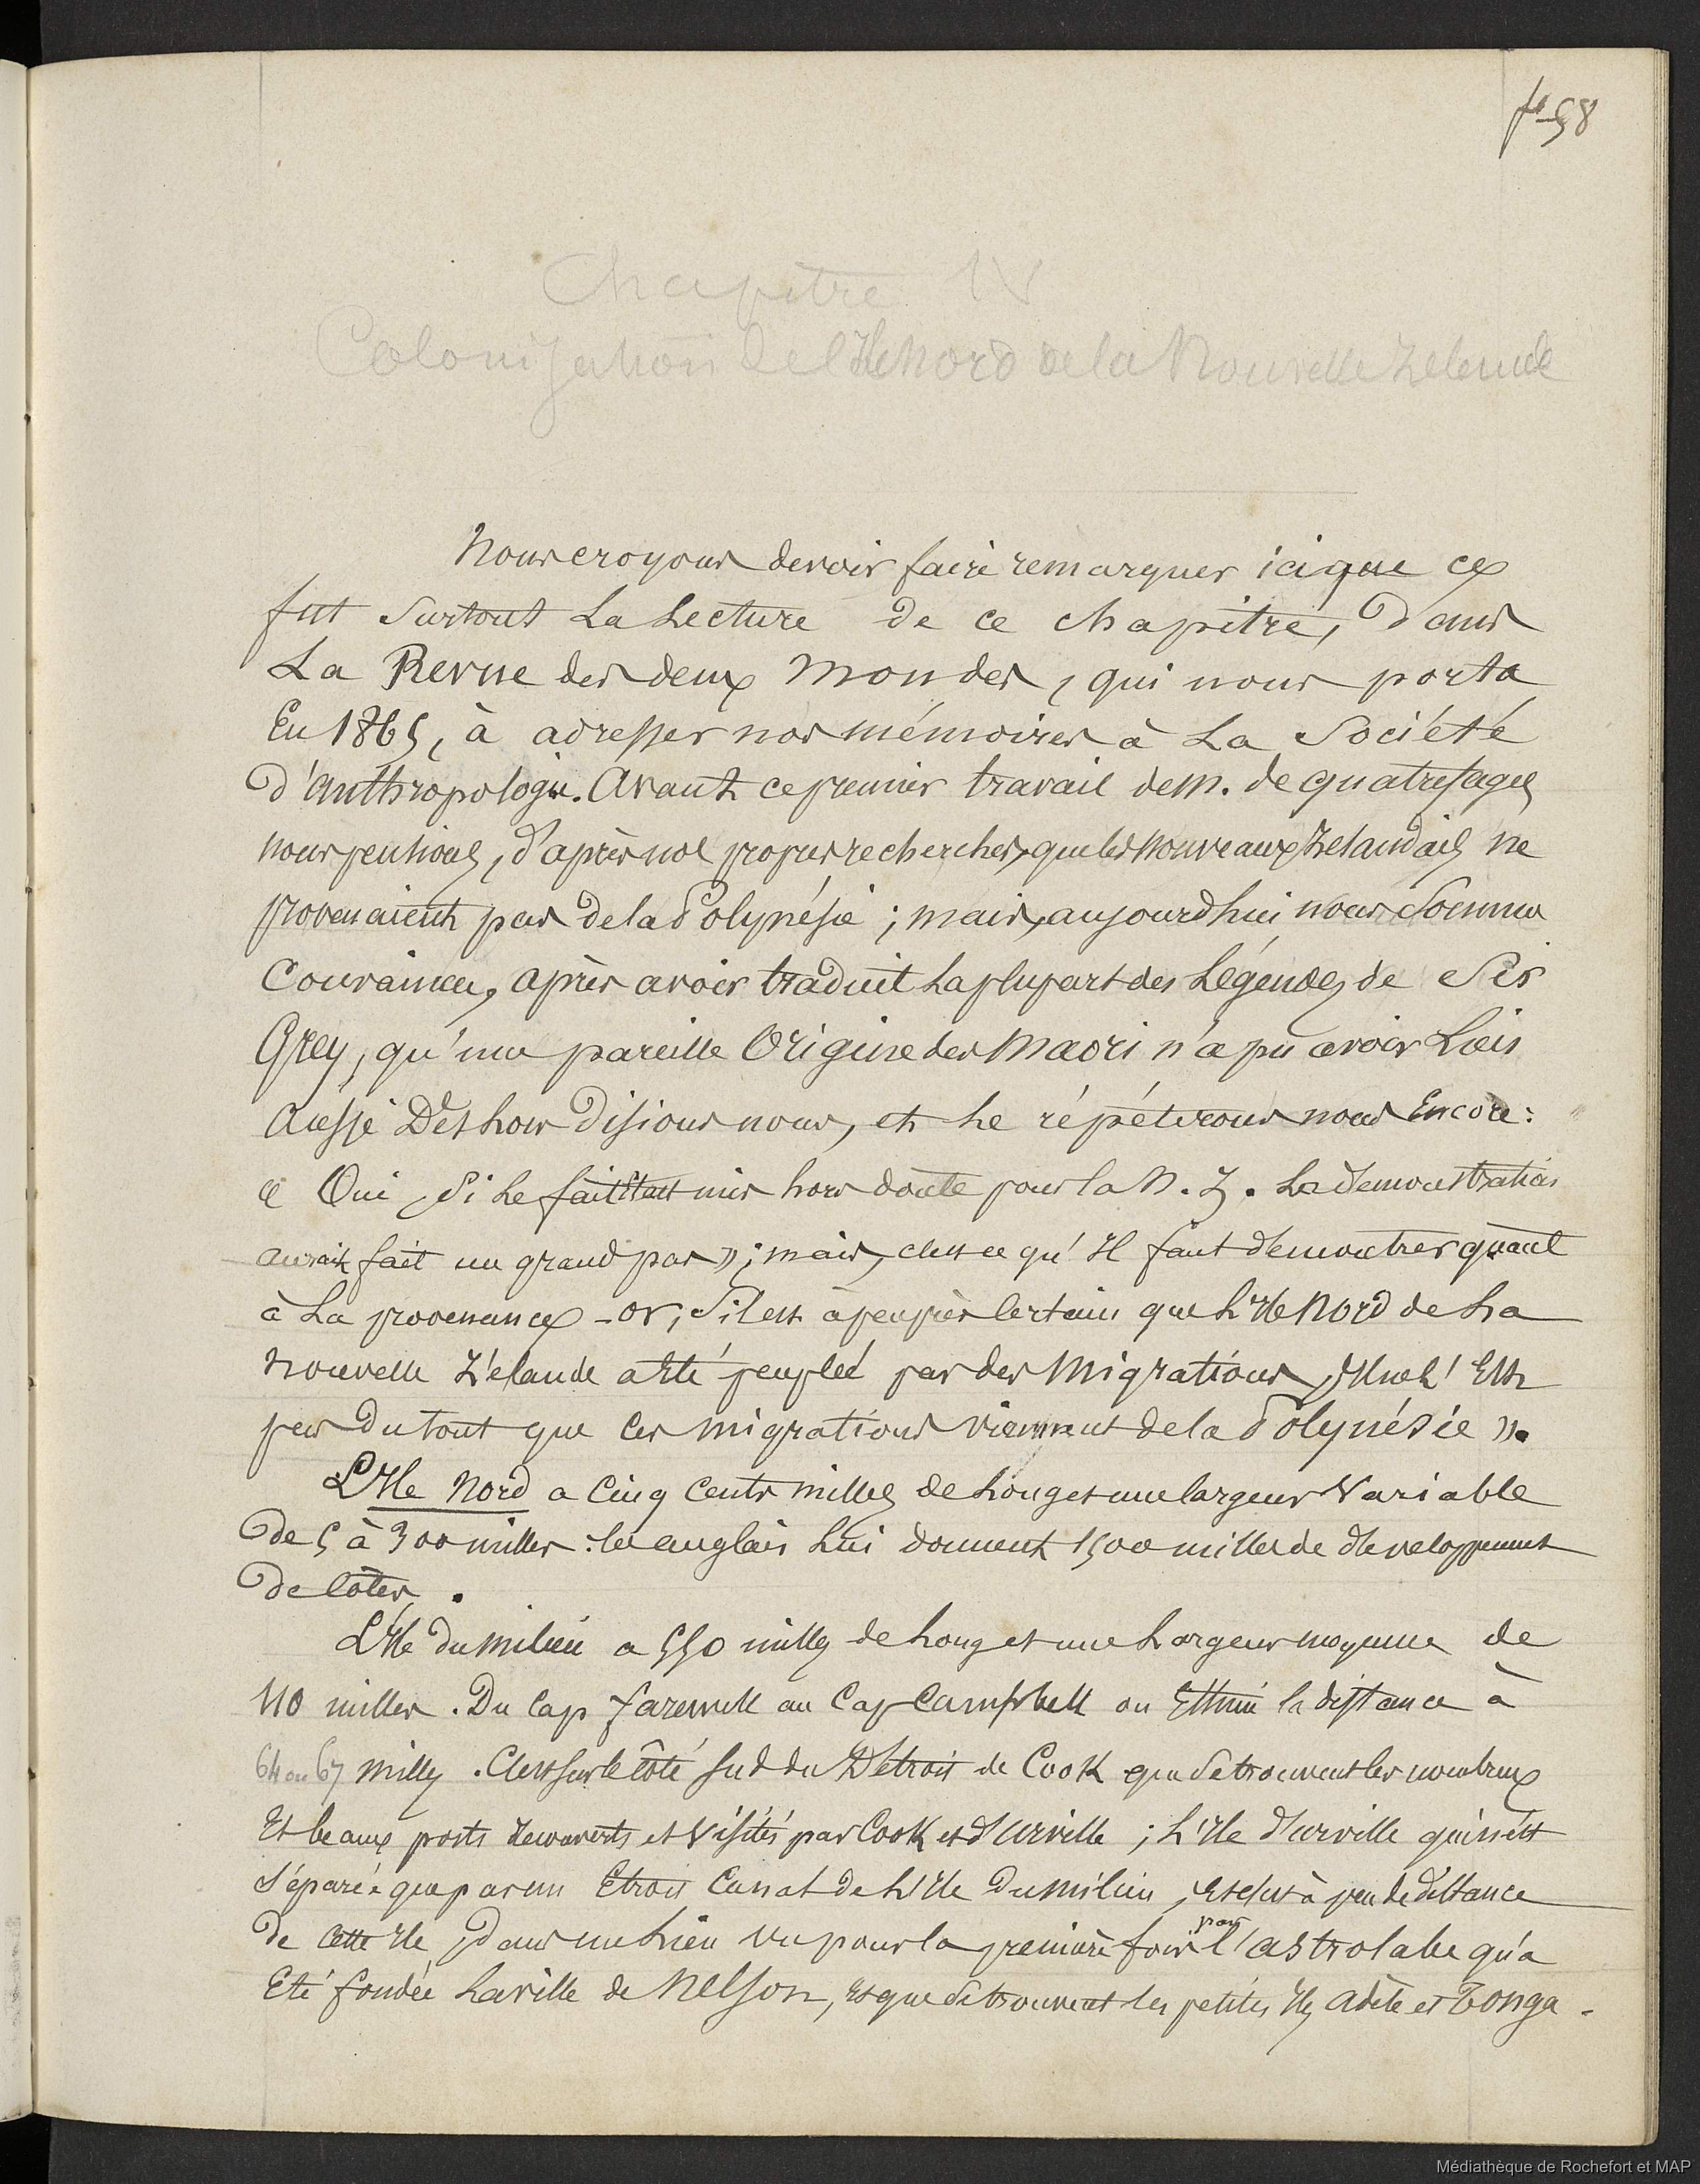 fo 58
Chapitre IV
Colonisation de l'Ile Nord de la Nouvelle Zelande
Nous croyons devoir faire remarquer ici que ce
fut surtout La Lecture de ce chapitre, Dans
La Revue des deux Mondes, qui nous porta
En 1865, à adresser nos mémoires à La Société
D'anthropologie. Avant ce premier travail de M. de Quatrefages
nous pensions, d'après nos propres recherches, que les Nouveaux Zelandais ne
provenaient pas de la Polynésie ; mais, aujourdhui nous sommes
Convaincu, après avoir traduit La plupart des Légendes de Sir
Grey, qu'une pareille Origine des Maori n'a pu avoir Lieu
Aussi Dès Lors Disions nous, et Le répéterons nous Encore :
« Oui, Si Le fait était mis hors doute pour la N. Z. La demonstration
aurait fait un grand pas » ; mais, c'est ce qu'Il faut démontrer quant
à La provenance - or, S'il est à peu près Certain que L'Ile Nord de La
Nouvelle Zélande a Eté peuplée par des Migrations, Il ne l'Est
pas Du tout que Ces migrations viennent de la Polynésie ».
L'Ile Nord a Cinq Cents milles de Long et une largeur Variable
De 5 à 300 milles : les anglais Lui donnent 1500 milles de développement
De Côtes.
L'Ile Du Milieu a 550 milles de Long et une Largeur moyenne de
110 milles. Du Cap Farewell au Cap Campbell on Estime la distance à
64 ou 67 milles. C'est sur le côté Sud du Détroit de Cook que se trouvent les nombreux
Et beaux ports découverts et visités par Cook et d'Urville ; L'Ile d'urville qui n'est
séparée que par un Etroit Canal de L'Ile Du Milieu, Et c'est à peu de distance
de Cette Ile, Dans un Lieu vu pour la première fois par l'astrolabe qu'a
Eté fondée La ville de Nelson, Et que se trouvent les petites Iles Adèle et Tonga.
Médiathèque de Rochefort et MAP